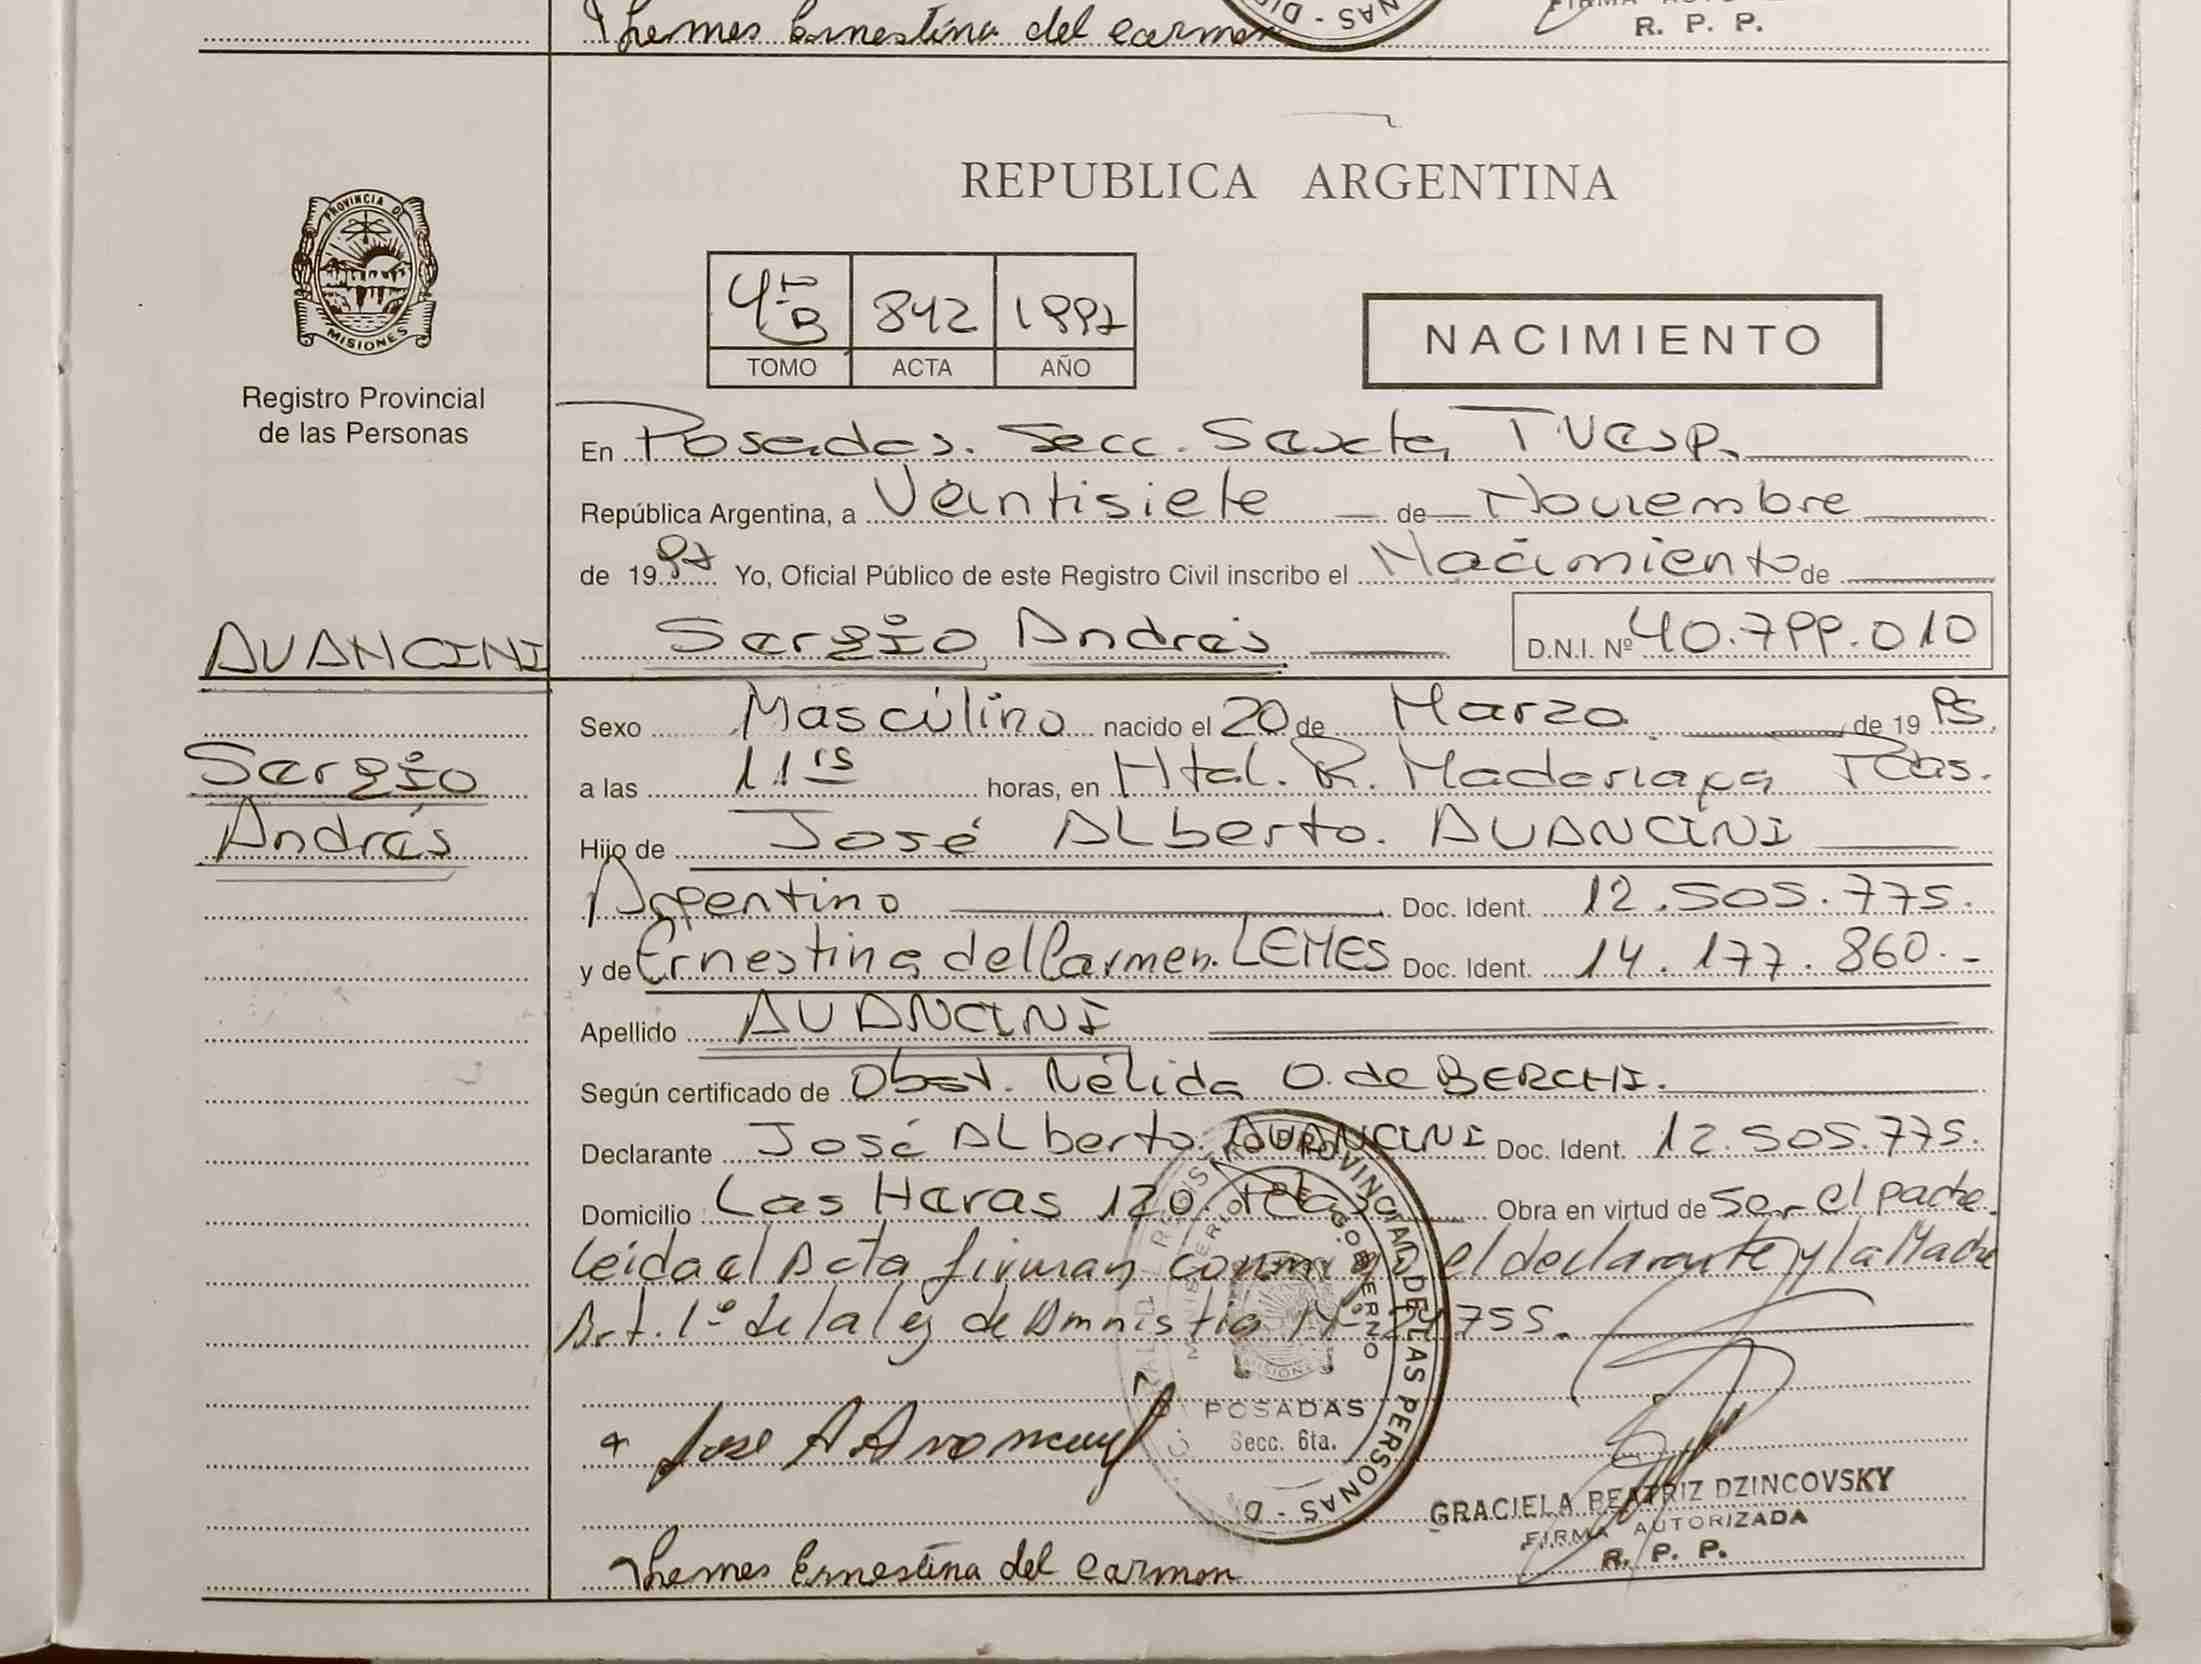 Themes Ernestina del Carmen
R. P. P.
PROVINCIA DE
MISIONES
Registro Provincial
de las Personas
REPUBLICA ARGENTINA
4º B 842 1997
TOMO ACTA AÑO
NACIMIENTO
En Posadas. Secc. Sexta, T Vesp.
República Argentina, a Veintisiete de Noviembre
de 1997 Yo, Oficial Público de este Registro Civil inscribo el Nacimiento de
AVANCINI Sergio Andrés D.N.I. Nº 40.799.010
Sexo Masculino nacido el 20 de Marzo de 1995.
Sergio
a las 11 rs horas, en Htal. R. Madariaga Pdas.
Andrés
Hijo de José ALberto. AVANCINI
Argentino Doc. Ident. 12.505.775.
y de Ernestina del Carmen. LEMES Doc. Ident. 14.177.860.-
Apellido AVANCINI
Según certificado de Obst. Nélida O. de BERCHI.
Declarante José ALberto. AVANCINI Doc. Ident. 12.505.775.
Domicilio Las Haras 120. Obra en virtud de ser el padre.
Leida el Acta firman conmigo el declarante y la Madre
Art. 1º de la ley de Amnistia Nº 24755.
REGISTRO PROVINCIAL DE LAS PERSONAS
MINISTERIO DE GOBIERNO
MISIONES
POSADAS
Secc. 6ta.
Jose A Avancini
GRACIELA BEATRIZ DZINCOVSKY
FIRMA AUTORIZADA
R. P. P.
Themes Ernestina del Carmen